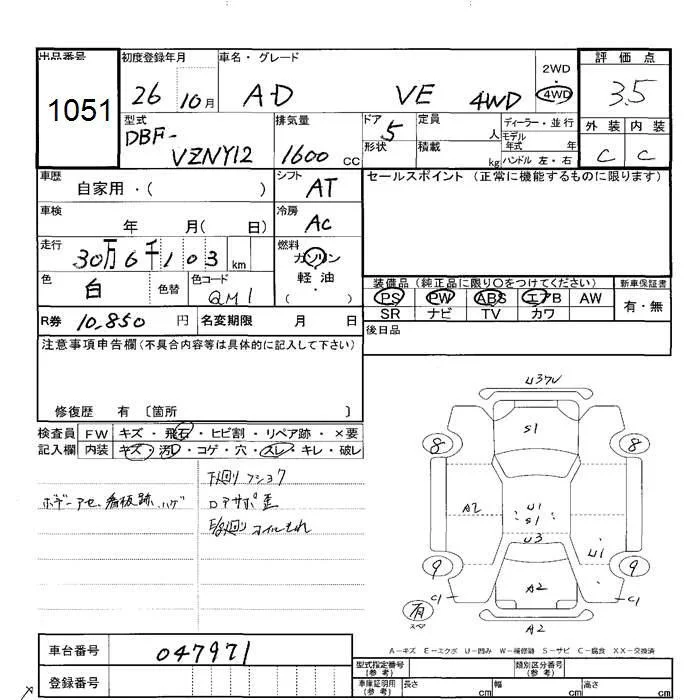 出品番号 初度登録年月 車名・グレード 2WD 評価点
1051 26 10月 AD VE 4WD ・4WD 3.5
型式 排気量 ドア 定員 ディーラー・並行 外装 内装
DBF- 5 人 モデル年式 年
VZNY12 1600 cc 形状 積載 kg ハンドル 左・右 C C
車歴 シフト セールスポイント (正常に機能するものに限ります)
自家用・( ) AT
車検 冷房
年 月( 日) AC
走行 燃料
30万6千103 km ガソリン
色 色コード 軽油 装備品 (純正品に限り○をつけてください) 新車保証書
白 色替 QM1 ( ) PS PW ABS エアB AW 有・無
R券 10,850 円 名変期限 月 日 SR ナビ TV カワ
注意事項申告欄(不具合内容等は具体的に記入して下さい) 後日品
修復歴 有 〔箇所 〕
検査員 FW キズ・飛石・ヒビ割・リペア跡・×要
記入欄 内装 キズ・汚レ・コゲ・穴・スレ・キレ・破レ
下廻りフショク
ボデーアセ、看板跡、ハゲ ロアサポ歪
E/g廻りオイルもれ
U3ワレ
S1
8 8
A2 U1
S1
U3 U1
9 9
A2 C1 C1
有
スペア
A2
A-キズ E-エクボ U-凹み W-補修跡 S-サビ C-腐食 XX-交換済
車台番号 047971 型式指定番号(参考) 類別区分番号(参考)
登録番号 車庫証明用(参考) 長さ cm 幅 cm 高さ cm